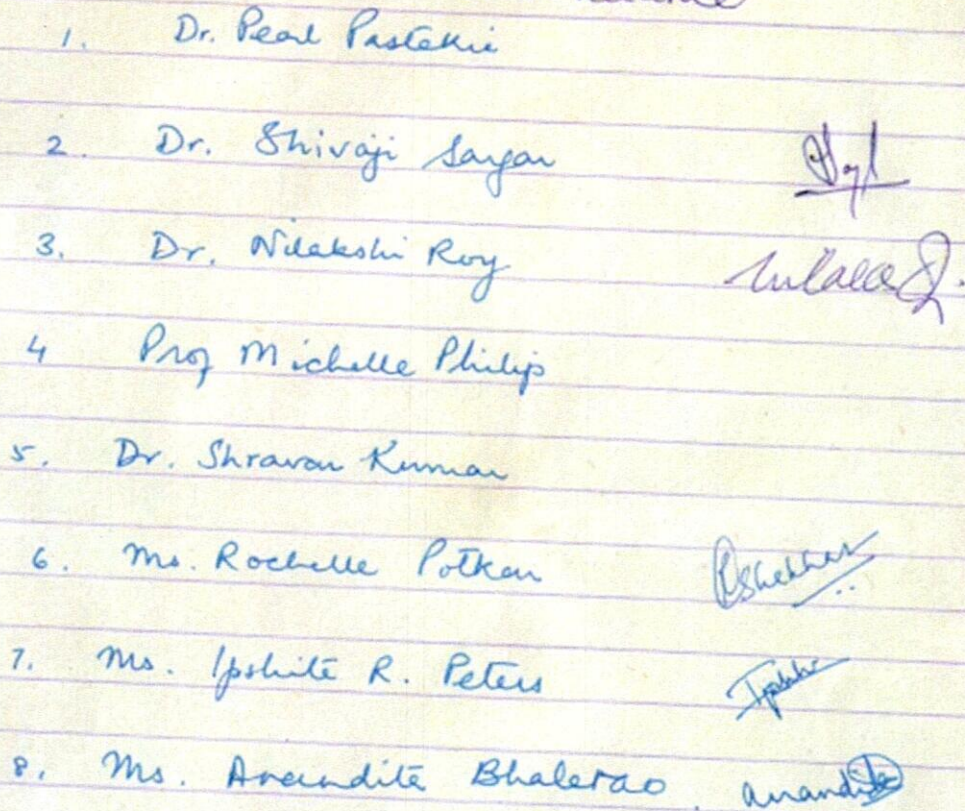 1. Dr. Pearl Pastakia
2. Dr. Shivaji Sargar
3. Dr. Nilakshi Roy
4 Prof Michelle Philip
5. Dr. Shravan Kumar
6. Ms. Rochelle Potkar RShekhar
7. Ms. Ipshita R. Peters Ipshita
8. Ms. Anandita Bhalerao Anandita